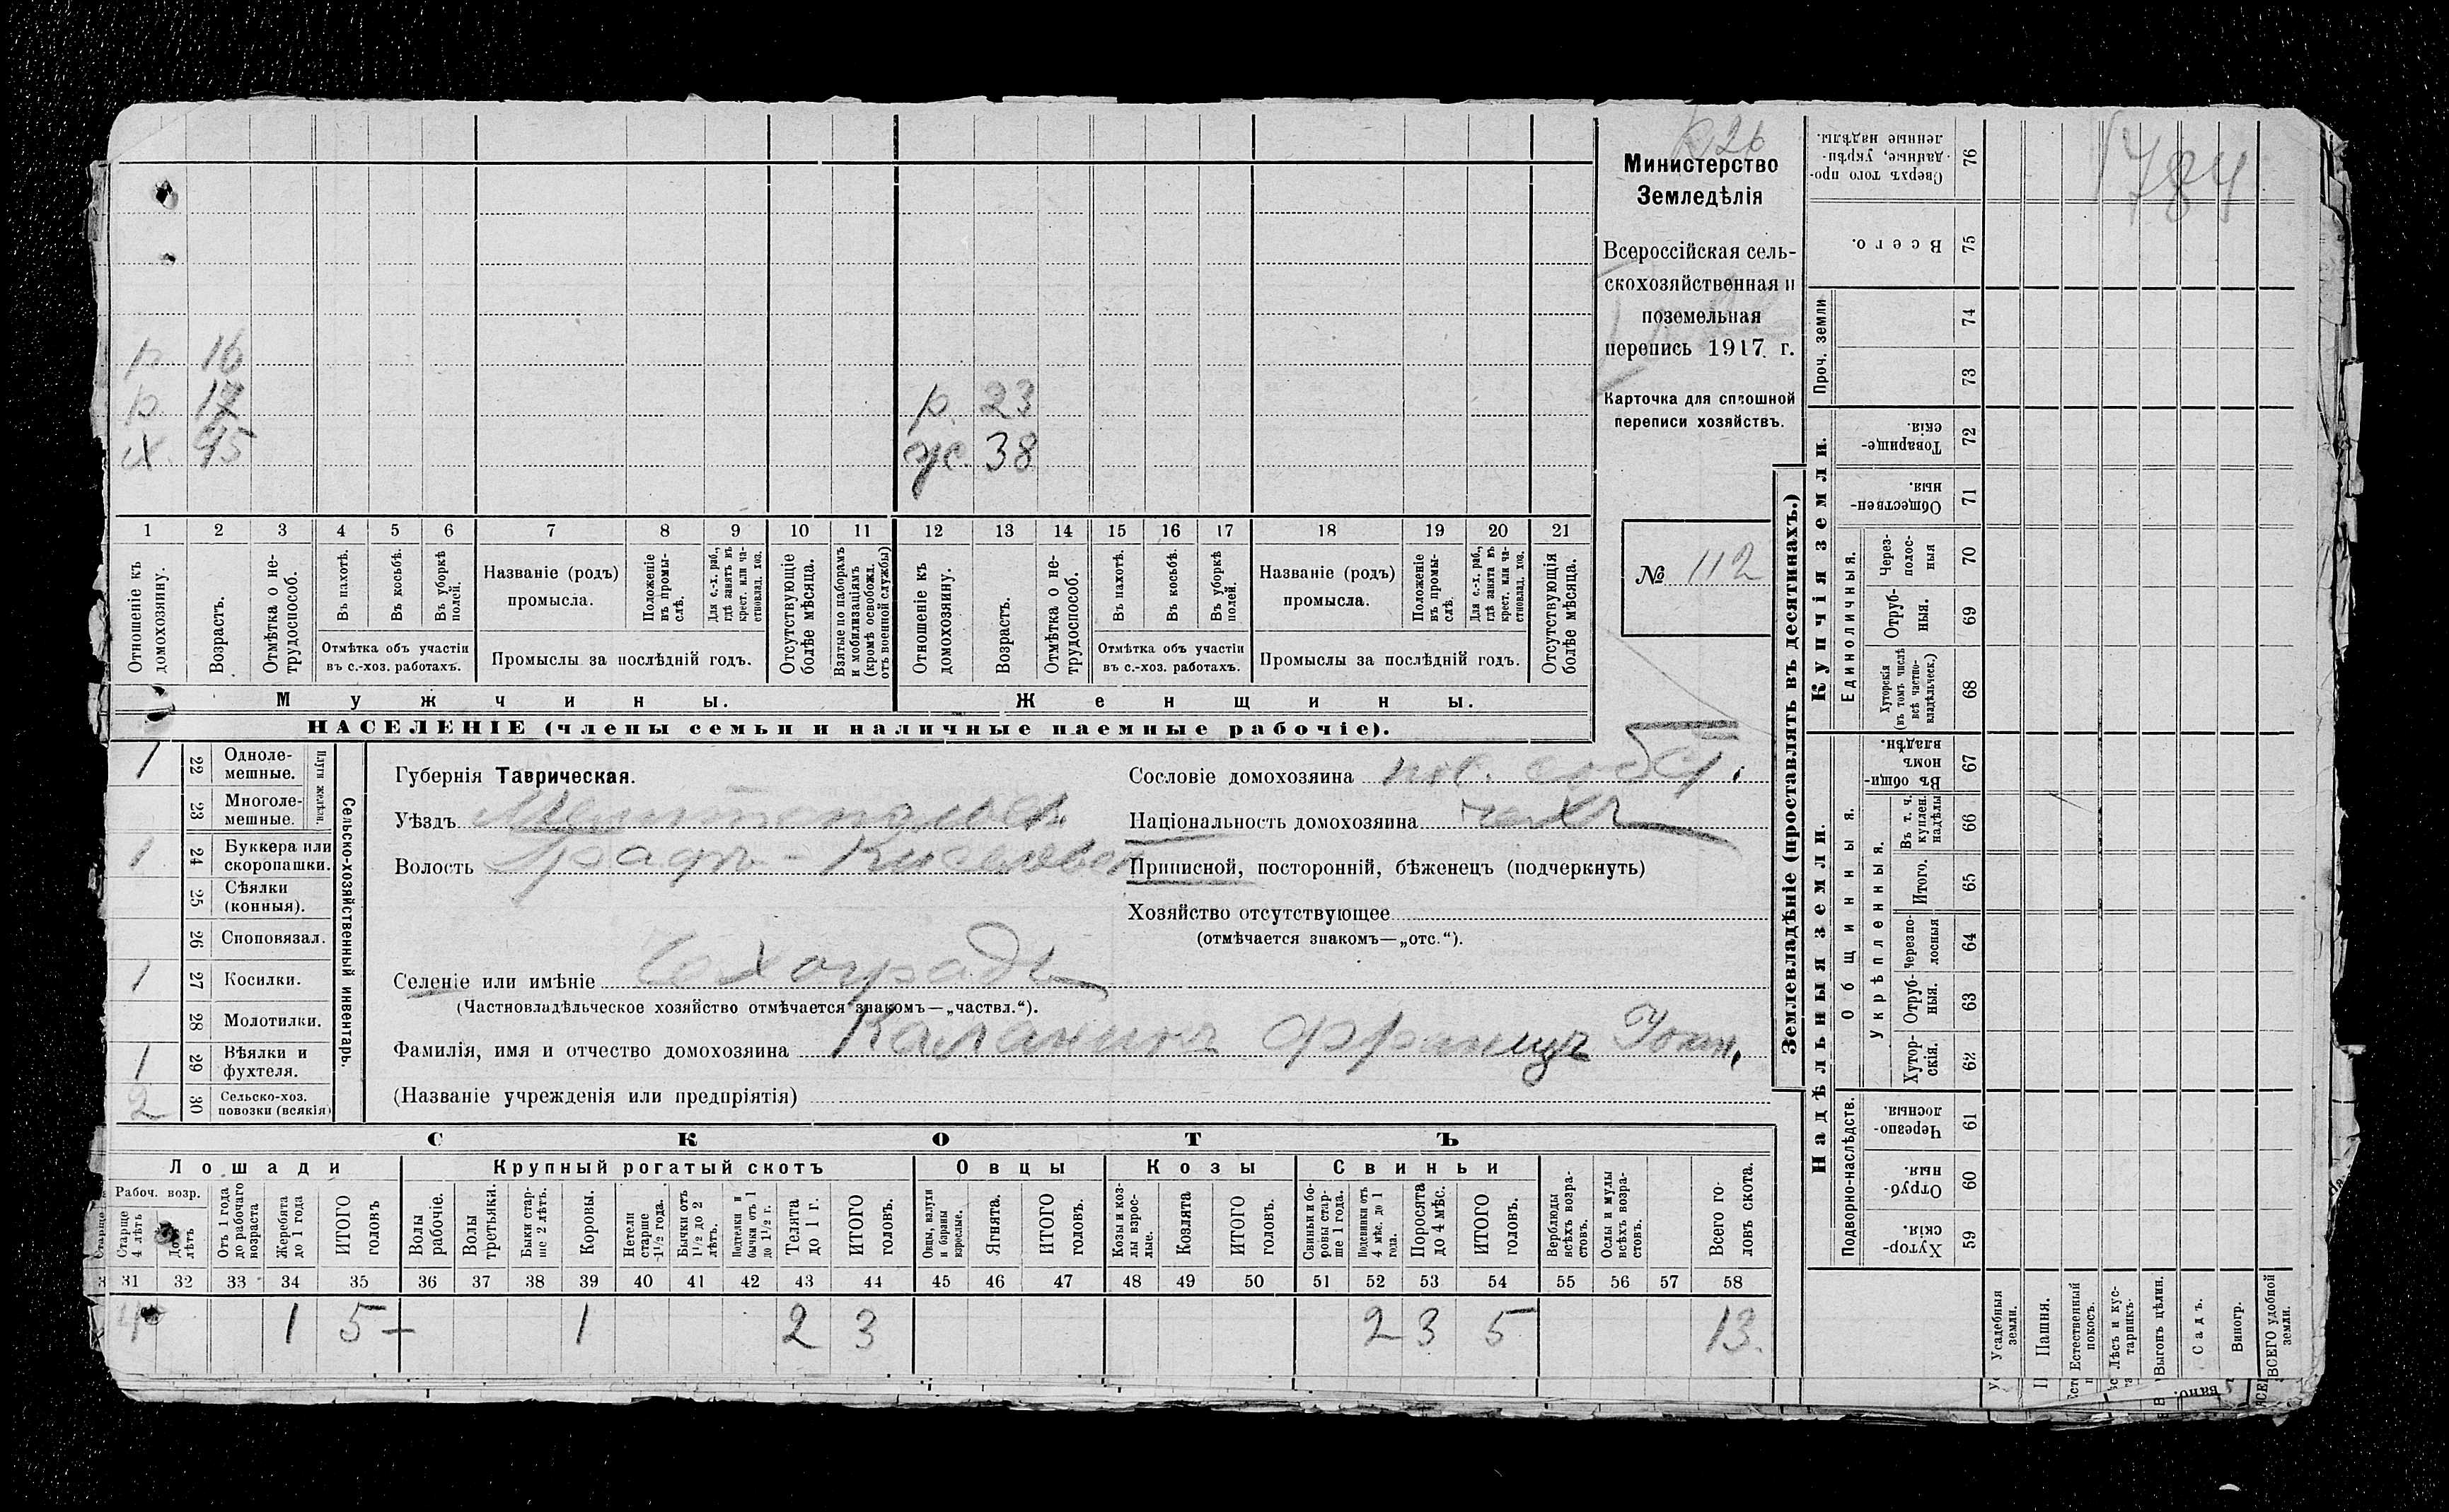 р 16
р 17
х. 45
р. 23
ж. 38
1 2 3 4 5 6 7 8 9 10 11 12 13 14 15 16 17 18 19 20 21
Отношеніе къ домохозяину.
Возрастъ.
Отмѣтка о не-
трудоспособ.
Въ пахотѣ.
Въ косьбѣ.
Въ уборкѣ полей.
Отмѣтка объ участіи
въ с.-хоз. работахъ.
Названіе (родъ)
промысла.
Положеніе въ промы-
слѣ.
Для с.-х. раб., гдѣ занятъ въ крест. или ча-
стновлад. хоз.
Промыслы за послѣдній годъ.
Отсутствующіе болѣе мѣсяца.
Взятые по наборамъ и мобилизаціямъ (кромѣ освобожд. отъ военной службы)
Отношеніе къ домохозяину.
Возрастъ.
Отмѣтка о не-
трудоспособ.
Въ пахотѣ.
Въ косьбѣ.
Въ уборкѣ полей.
Отмѣтка объ участіи
въ с.-хоз. работахъ.
Названіе (родъ)
промысла.
Положеніе въ промы-
слѣ.
Для с.-х. раб., гдѣ занята въ крест. или ча-
стновлад. хоз.
Промыслы за послѣдній годъ.
Отсутствующія болѣе мѣсяца.
Мужчины.
Женщины.
НАСЕЛЕНІЕ (члены семьи и наличные наемные рабочіе).
Министерство
Земледѣлія
Всероссійская сель-
скохозяйственная и
поземельная
перепись 1917 г.
Карточка для сплошной
переписи хозяйствъ.
№ 112
1 22 Одноле-
мешные.
23 Многоле-
мешные.
Плуги желѣзн.
1 24 Буккера или
скоропашки.
25 Сѣялки
(конныя).
26 Сноповязал.
1 27 Косилки.
28 Молотилки.
1 29 Вѣялки и
фухтеля.
2 30 Сельско-хоз.
повозки (всякія)
Сельско-хозяйственный инвентарь.
Губернія Таврическая.
Уѣздъ Мелитопольск.
Волость Графъ-Киселевск
Селеніе или имѣніе Чехоградъ
(Частновладѣльческое хозяйство отмѣчается знакомъ—„частвл.“).
Фамилія, имя и отчество домохозяина Францъ
(Названіе учрежденія или предпріятія)
Сословіе домохозяина пос. собст.
Національность домохозяина чехъ
Приписной, посторонній, бѣженецъ (подчеркнуть)
Хозяйство отсутствующее
(отмѣчается знакомъ—„отс.“).
СКОТЪ
Лошади
Крупный рогатый скотъ
Овцы
Козы
Свиньи
Рабоч. возр.
Старше 4 лѣтъ
До лѣтъ
Отъ 1 года до рабочаго возраста
Жеребята до 1 года
ИТОГО головъ
Волы рабочіе.
Волы третьяки.
Быки стар-
ше 2 лѣтъ.
Коровы.
Нетели старше 1½ года.
Бычки отъ 1½ до 2 лѣтъ.
Подтелки и бычки отъ 1 до 1½ г.
Телята до 1 г.
ИТОГО головъ.
Овцы, валухи и бараны взрослые.
Ягнята.
ИТОГО головъ.
Козы и коз-
лы взрос-
лые.
Козлята
ИТОГО головъ.
Свиньи и бо-
ровы стар-
ше 1 года.
Подсвинки отъ 4 мѣс. до 1 года.
Поросята до 4 мѣс.
ИТОГО головъ.
Верблюды всѣхъ возра-
стовъ.
Ослы и мулы всѣхъ возра-
стовъ.
Всего го-
ловъ скота.
31 32 33 34 35 36 37 38 39 40 41 42 43 44 45 46 47 48 49 50 51 52 53 54 55 56 57 58
4 1 5 1 2 3 2 3 5 13.
Землевладѣніе (проставлять въ десятинахъ.)
Купчія земли.
Надѣльныя земли.
784
76 Сверхъ того про-
данные, укрѣп-
ленные надѣлы.
75 Всего.
Проч. земли
74
73
72 Товарище-
скія.
71 Обществен-
ныя.
Единоличныя.
70 Через-
полос-
ныя
69 Отруб-
ныя.
68 Хуторскія (въ томъ числѣ всѣ частно-
владѣльческ.)
Общинныя.
67 Въ общин-
номъ владѣн.
Укрѣпленныя.
66 Въ т. ч. куплен. надѣлы
65 Итого.
64 Черезпо-
лосныя
63 Отруб-
ныя.
62 Хутор-
скія.
Подворно-наслѣдств.
61 Черезпо-
лосныя.
60 Отруб-
ныя.
59 Хутор-
скія.
Усадебныя земли.
Пашня.
Естественный покосъ.
Лѣсъ и кус-
тарникъ.
Выгонъ цѣлин.
Садъ.
Виногр.
ВСЕГО удобной земли.